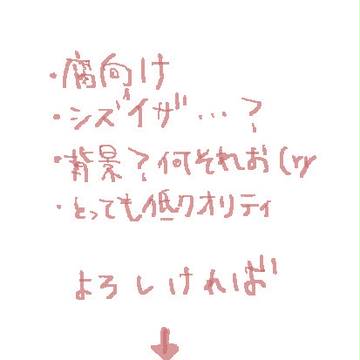 ・腐向け
・シズイザ…?
・背景?何それお(ry
・とっても低クオリティ
よろしければ
↓